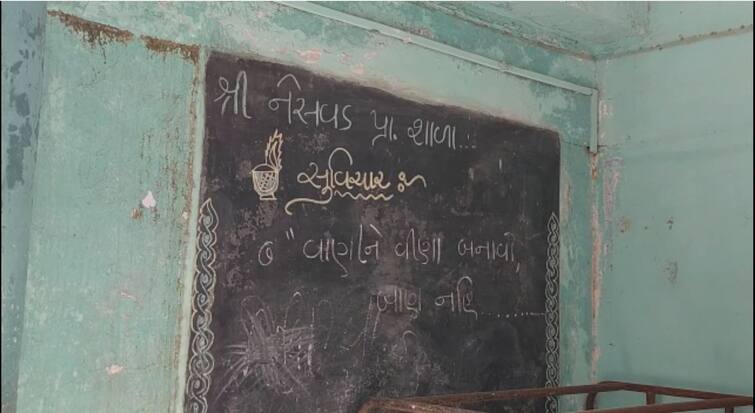 શ્રી નેસવડ પ્રા. શાળા...
સુવિચાર :~
" વાણીને વીણા બનાવો,
બાણ નહિ..........